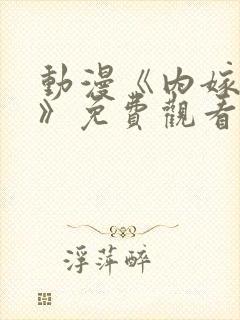 動漫《内嫁
》免費觀看
浮萍醉